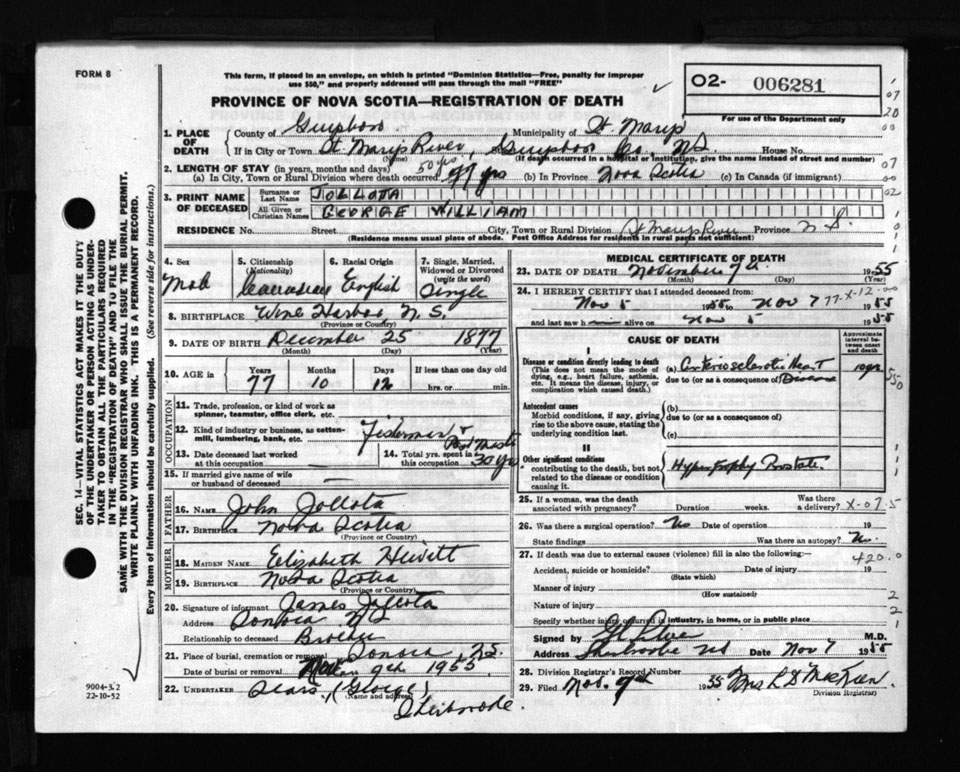 FORM 8
This form, if placed in an envelope, on which is printed "Dominion Statistics—Free, penalty for improper
use $50," and properly addressed will pass through the mail "FREE"
O2- 006281
For use of the Department only
07
20
00
PROVINCE OF NOVA SCOTIA—REGISTRATION OF DEATH
1. PLACE OF DEATH
County of Guysboro Municipality of St. Marys
If in City or Town St. Marys River, Guysboro Co. NS House No.
(Name) (If death occurred in a hospital or institution, give the name instead of street and number)
2. LENGTH OF STAY (in years, months and days)
(a) In City, Town or Rural Division where death occurred 50 yrs 77 yrs (b) In Province Nova Scotia (c) In Canada (if immigrant)
07
00
02
3. PRINT NAME OF DECEASED
Surname or Last Name JOLLOTA
All Given or Christian Names GEORGE WILLIAM
RESIDENCE No. Street City, Town or Rural Division St Marys River Province N S.
(Residence means usual place of abode. Post Office Address for residents in rural parts not sufficient)
4. Sex
5. Citizenship (Nationality) Canadian
6. Racial Origin English
7. Single, Married, Widowed or Divorced (write the word) Single
8. BIRTHPLACE Wine Harbor N. S.
(Province or Country)
9. DATE OF BIRTH December 25 1877
(Month) (Day) (Year)
10. AGE in Years Months Days If less than one day
77 10 12 hrs. or min.
OCCUPATION
11. Trade, profession, or kind of work as spinner, teamster, office clerk, etc.
12. Kind of industry or business, as cotton-mill, lumbering, bank, etc. Fisherman & Post Master
13. Date deceased last worked at this occupation
14. Total yrs. spent in this occupation 30 yrs
15. If married give name of wife or husband of deceased —
FATHER
16. Name John Jollota
17. Birthplace Nova Scotia
(Province or Country)
MOTHER
18. MAIDEN NAME Elizabeth Hewitt
19. BIRTHPLACE Nova Scotia
(Province or Country)
20. Signature of informant James Jollota
Address Sonora NS
Relationship to deceased Brother
21. Place of burial, cremation or removal Sonora, NS.
Date of burial or removal 9th 1955
22. UNDERTAKER Sears, (George)
(Name and address)
Sherbrooke.
MEDICAL CERTIFICATE OF DEATH
23. DATE OF DEATH November 7th 1955
(Month) (Day) (Year)
24. I HEREBY CERTIFY that I attended deceased from:
Nov 5 1955 to Nov 7 1955
77-X-12-00
and last saw h alive on Nov 5 1955
CAUSE OF DEATH
Approximate interval between onset and death
I
Disease or condition directly leading to death
(This does not mean the mode of dying, e.g., heart failure, asthenia, etc. It means the disease, injury, or complication which caused death.)
(a) Arteriosclerotic Heart Disease 10 yrs
due to (or as a consequence of)
Antecedent causes
Morbid conditions, if any, giving rise to the above cause, stating the underlying condition last.
(b)
due to (or as a consequence of)
(c)
II
Other significant conditions
contributing to the death, but not related to the disease or condition causing it.
Hypertrophy Prostate.
25. If a woman, was the death associated with pregnancy? Duration weeks. Was there a delivery?
X-07-5
26. Was there a surgical operation? No Date of operation 19
State findings Was there an autopsy? No.
27. If death was due to external causes (violence) fill in also the following:—
420.0
Accident, suicide or homicide? Date of injury 19
(State which)
Manner of injury
(How sustained)
2
Nature of injury
2
Specify whether injury occurred in industry, in home, or in public place
1
Signed by M.D.
Address Sherbrooke NS Date Nov 7 1955
28. Division Registrar's Record Number
29. Filed Nov. 9th 1955 Mrs L S McKeen
(Division Registrar)
SEC. 14—VITAL STATISTICS ACT MAKES IT THE DUTY
OF THE UNDERTAKER OR PERSON ACTING AS UNDER-
TAKER TO OBTAIN ALL THE PARTICULARS REQUIRED
IN THE "REGISTRATION OF DEATH" AND TO FILE THE
SAME WITH THE DIVISION REGISTRAR WHO SHALL ISSUE THE BURIAL PERMIT.
WRITE PLAINLY WITH UNFADING INK. THIS IS A PERMANENT RECORD.
Every item of information should be carefully supplied. (See reverse side for instructions.)
9004-3.2
22-10-52